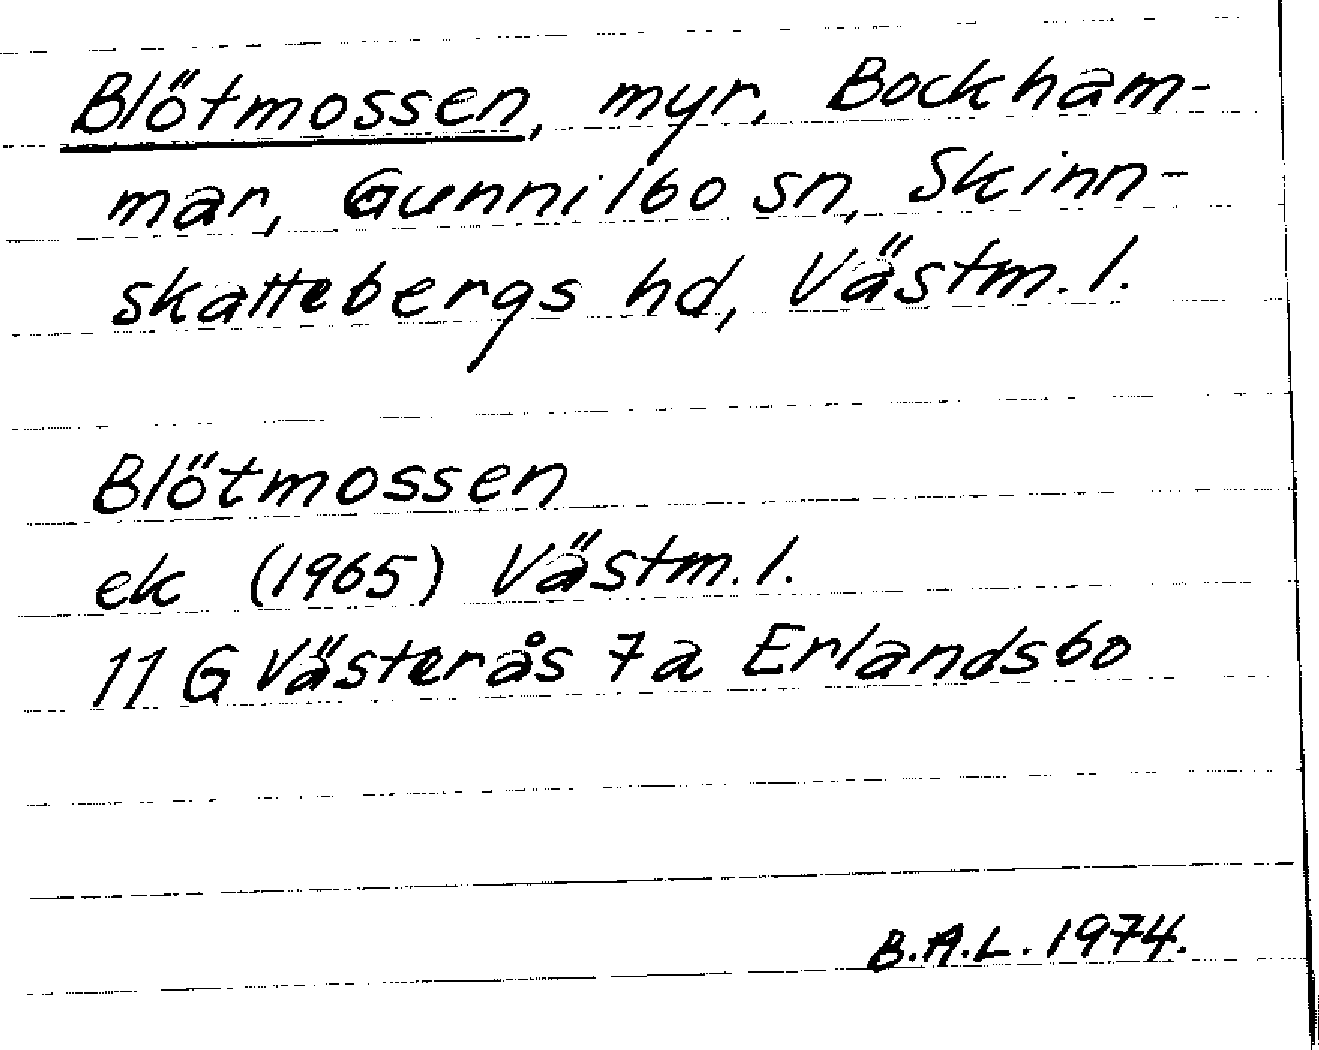 Blötmossen, myr, Bockham-
mar, Gunnilbo sn, Skinn-
skattebergs hd, Västm. l.
Blötmossen
ek (1965) Västm. l.
11 G Västerås 7a Erlandsbo
B.A.L. 1974.